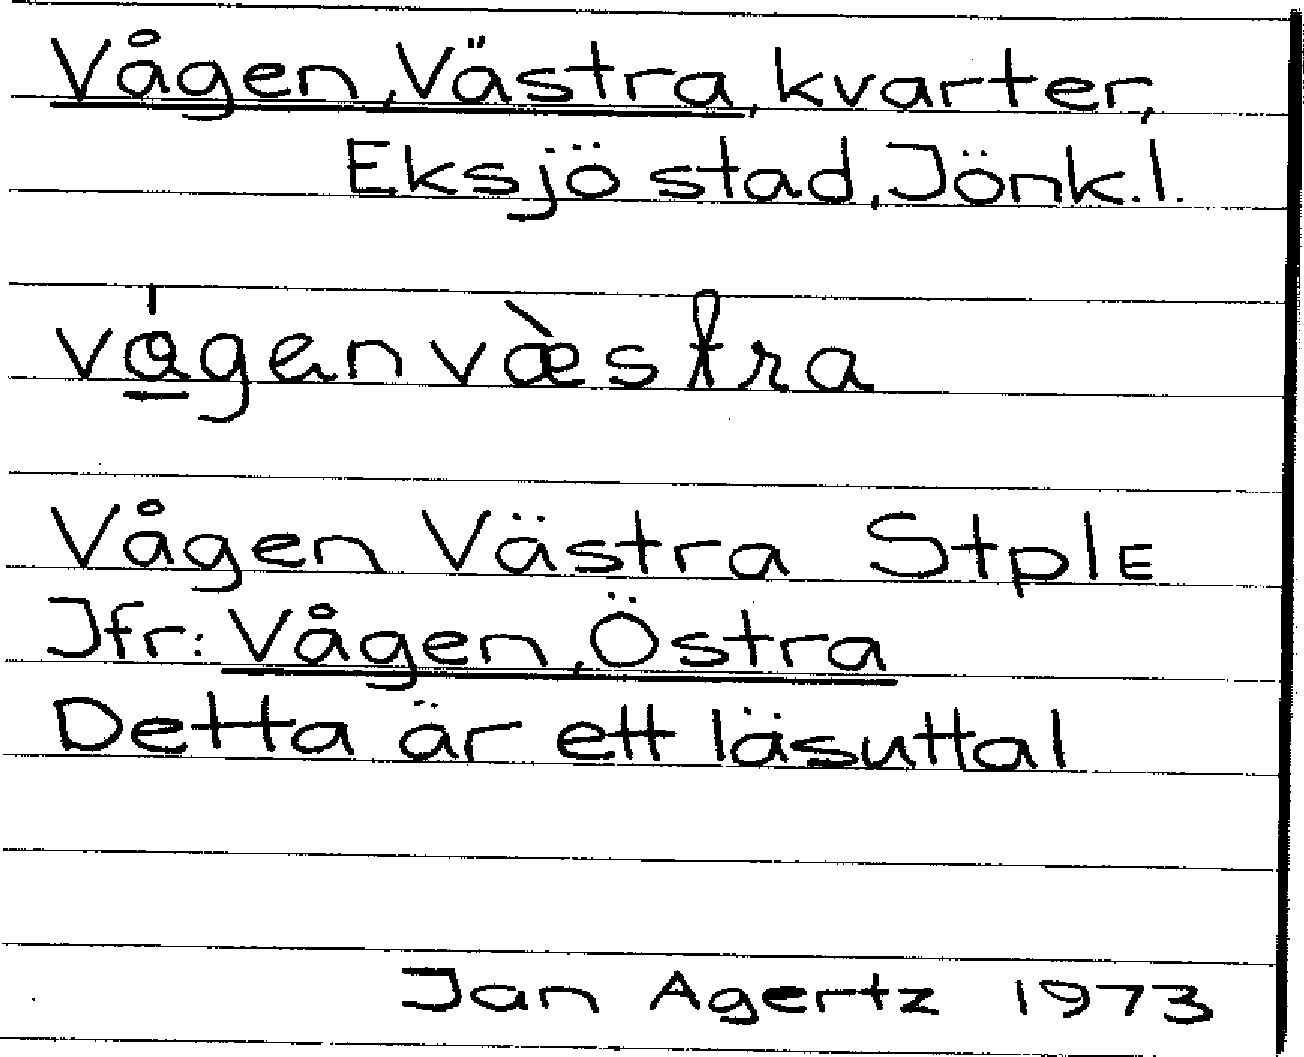 Vågen, Västra, kvarter,
Eksjö stad, Jönk. l.
vágen væ̀stra
Vågen Västra StplE
Jfr: Vågen, Östra
Detta är ett läsuttal
Jan Agertz 1973